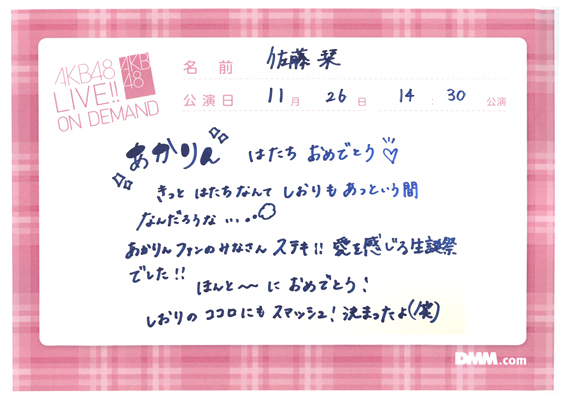 AKB48
LIVE!!
ON DEMAND
AKB
48
名 前 佐藤 栞
公演日 11月 26日 14:30 公演
あかりん はたち おめでとう♡
きっと はたちなんて しおりも あっという間
なんだろうな…..
あかりんファンのみなさん ステキ!! 愛を感じる生誕祭
でした!!
ほんと〜に おめでとう!
しおりの ココロにも スマッシュ! 決まったよ(笑)
DMM.com